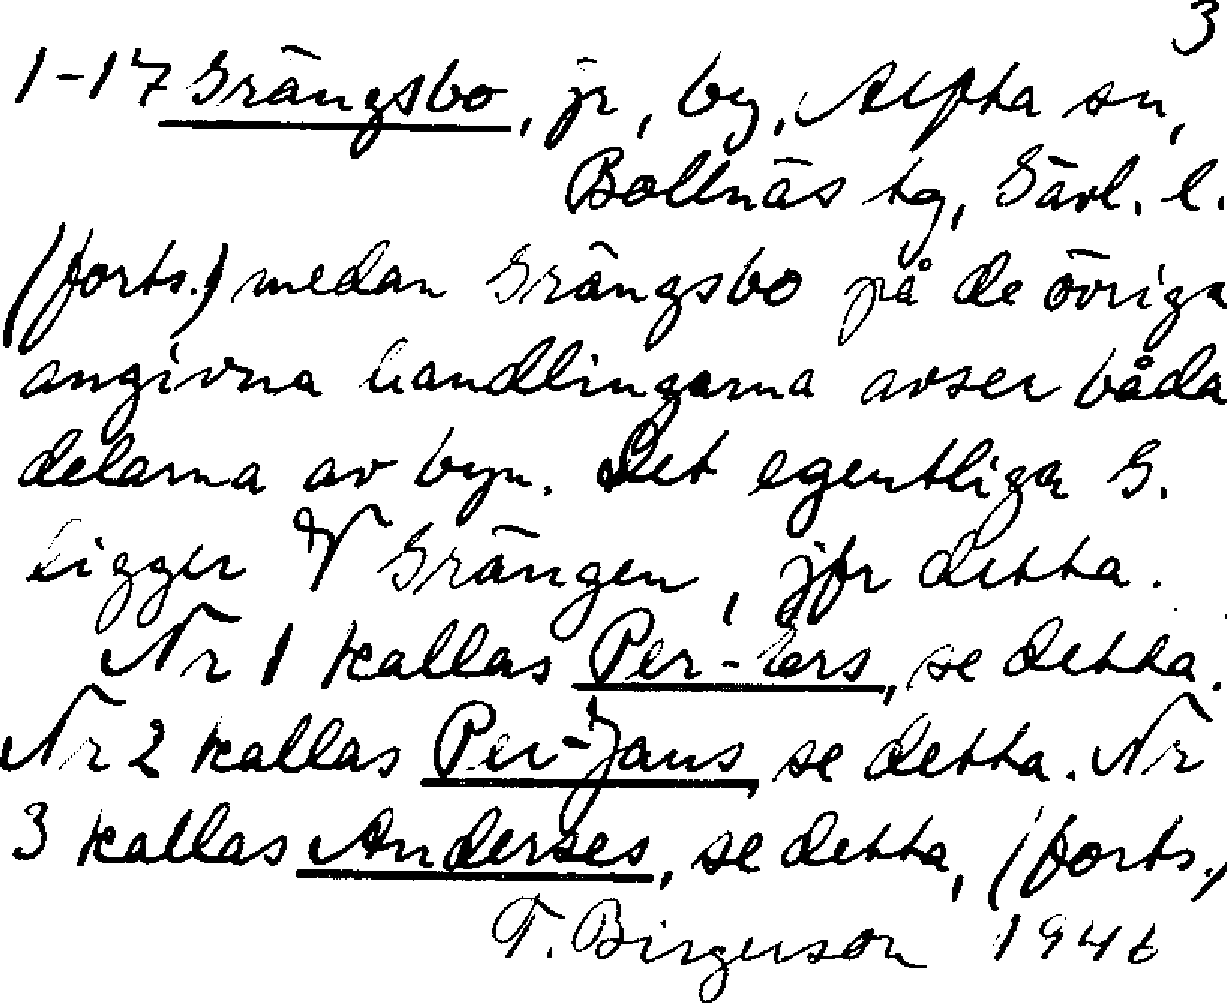 3
1-17 Grängsbo, jr, by, Alfta sn,
Bollnäs tg, Gävl. l.
(forts.) medan Grängsbo på de övriga
angivna handlingarna avser båda
delarna av byn. Det egentliga G.
ligger V Grängen, jfr detta.
Nr 1 kallas Per-Ers, se detta.
Nr 2 kallas Per-Jans, se detta. Nr
3 kallas Anderses, se detta, (forts.)
F. Birgerson 1946